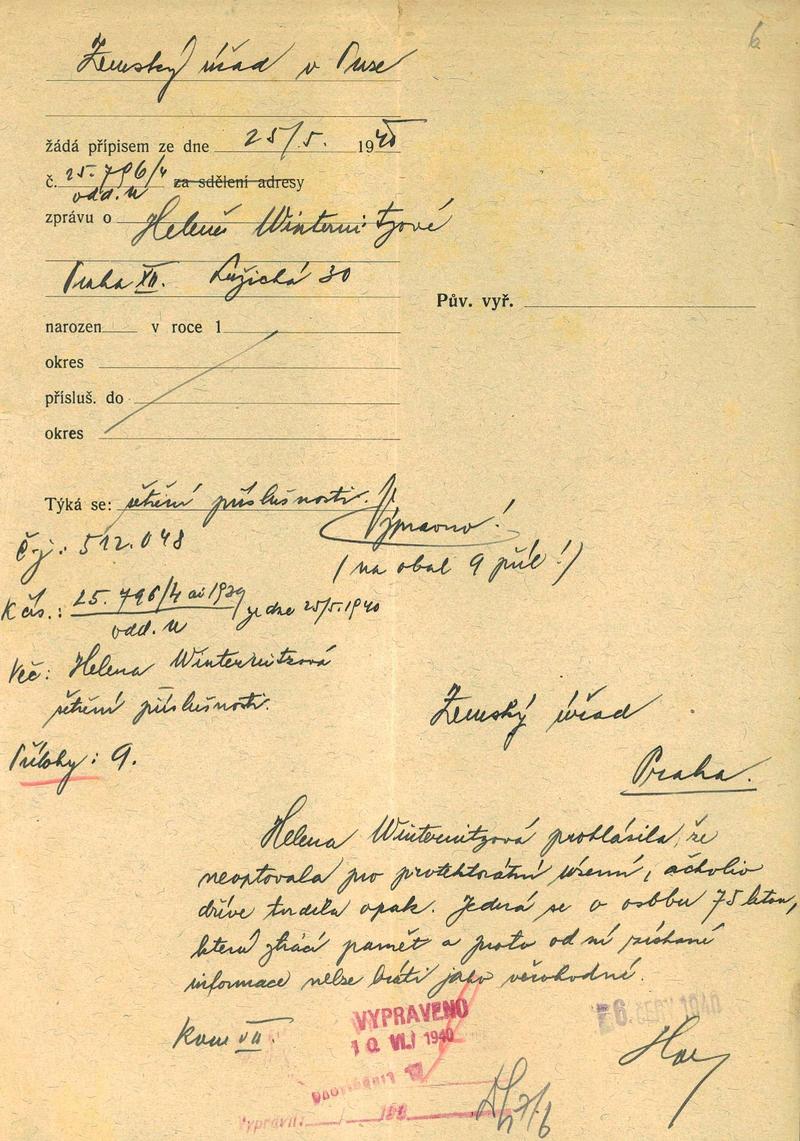 6
Zemský úřad v Praze
žádá přípisem ze dne 25/5. 1940
č. 25.796/4 za sdělení adresy
odd. u
zprávu o Heleně Winternitzové
Praha XII. Lužická 30
Pův. vyř.
narozen v roce 1
okres
přísluš. do
okres
Týká se: šetření příslušnosti.
Výpravno!
(na obal 9 příl!)
Čj.: 512.048
K čís.: 25.796/4 ai 1939 ze dne 25/5.1940
odd. u
Věc: Helena Winternitzová
šetření příslušnosti.
Přílohy: 9.
Zemský úřad
Praha.
Helena Winternitzová prohlásila, že
neoptovala pro protektorátní území, ačkoliv
dříve tvrdila opak. Jedná se o osobu 75 letou,
která ztrácí paměť a proto od ní získané
informace nelze bráti jako věrohodné.
VYPRAVENO
10. VII 1940
26. ČERV. 1940
Vypravil: 193
27/6